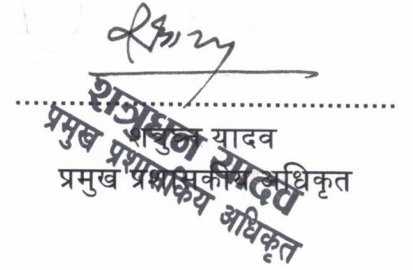 शत्रुघ्न यादव
प्रमुख प्रशासकीय अधिकृत
शत्रुघ्न यादव
प्रमुख प्रशासकिय अधिकृत